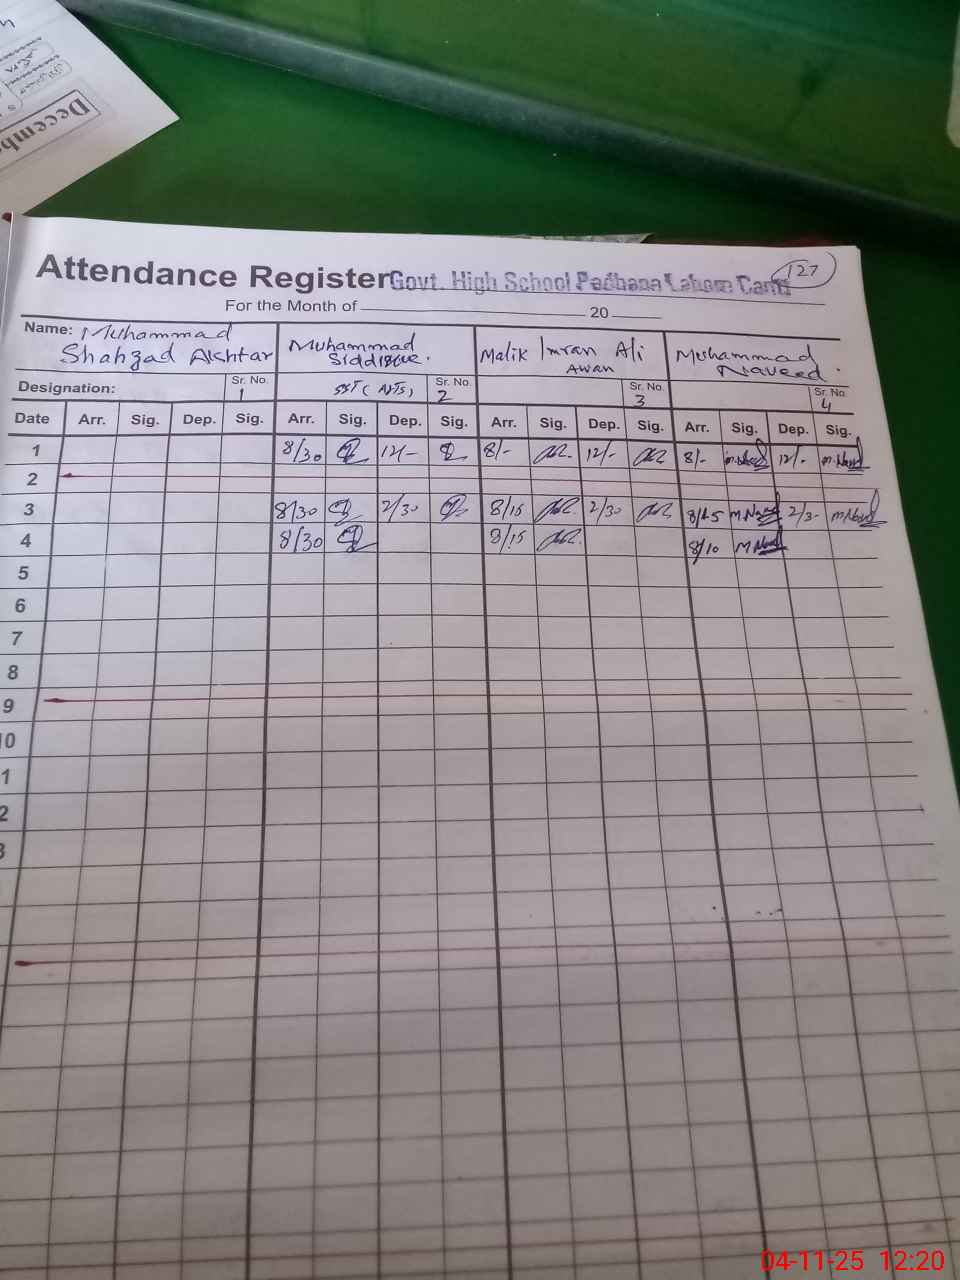 Decemb
Attendance Register Govt. High School Padhana Lahore Cantt
127
For the Month of 20
Name: Muhammad Shahzad Akhtar
Muhammad Siddique.
Malik Imran Ali Awan
Muhammad Naveed.
Designation: Sr. No. 1 SST (Arts) Sr. No. 2 Sr. No. 3 Sr. No. 4
Date Arr. Sig. Dep. Sig. Arr. Sig. Dep. Sig. Arr. Sig. Dep. Sig. Arr. Sig. Dep. Sig.
1 8/30 12/- 8/- 12/- 8/- m.Naved 12/- m.Naved
2
3 8/30 2/30 8/15 2/30 8/15 m Naved 2/3- m Naved
4 8/30 8/15 8/10 m Naved
5
6
7
8
9
10
1
2
3
04-11-25 12:20